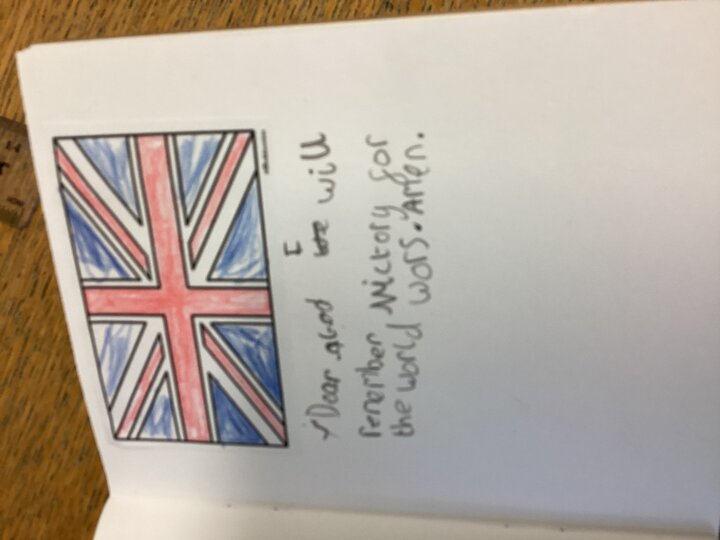 Dear God I we will
remember Victory for
the world wors. Amen.